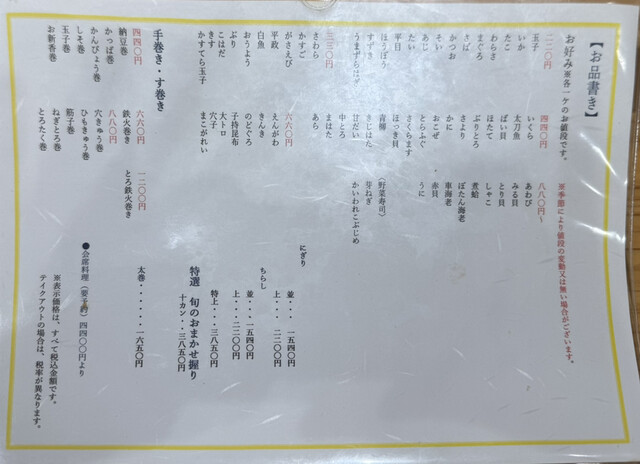 【お品書き】
お好み※各一ケのお値段です。
※季節により値段の変動又は無い場合がございます。
二二〇円
玉子
いか
たこ
わらさ
まぐろ
さば
かつお
そい
あじ
たい
平目
ほうぼう
すずき
うまずらはぎ
三三〇円
さわら
かすご
がさえび
平政
白魚
おうよう
ぶり
こはだ
きす
かすてら玉子
四四〇円
いくら
太刀魚
ばい貝
ほたて
ぶりとろ
さより
かに
おこぜ
とらふぐ
さくらます
ほっき貝
青柳
きじはた
甘だい
中とろ
まはた
あら
六六〇円
えんがわ
きんき
のどぐろ
子持昆布
大トロ
穴子
まこがれい
八八〇円~
あわび
みる貝
とり貝
しゃこ
煮蛤
ぼたん海老
車海老
赤貝
うに
(野菜寿司)
芽ねぎ
かいわれこぶじめ
にぎり
並・・・一五四〇円
上・・・二二〇〇円
ちらし
並・・・一五四〇円
上・・・二二〇〇円
特上・・・三八五〇円
特選 旬のおまかせ握り
十カン・・・三八五〇円
手巻き・す巻き
四四〇円
納豆巻
かっぱ巻
かんぴょう巻
しそ巻
玉子巻
お新香巻
六六〇円
鉄火巻き
八八〇円
穴きゅう巻
ひもきゅう巻
筋子巻
ねぎとろ巻
とろたく巻
一二〇〇円
とろ鉄火巻き
太巻・・・・・一六五〇円
●会席料理(要予約)四四〇〇円より
※表示価格は、すべて税込金額です。
テイクアウトの場合は、税率が異なります。